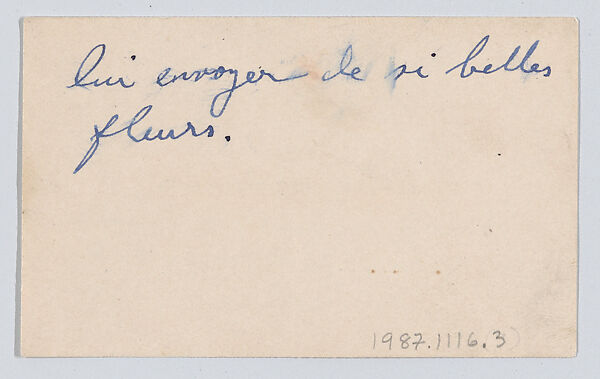 lui envoyer de si belles
fleurs.
1987.1116.3)